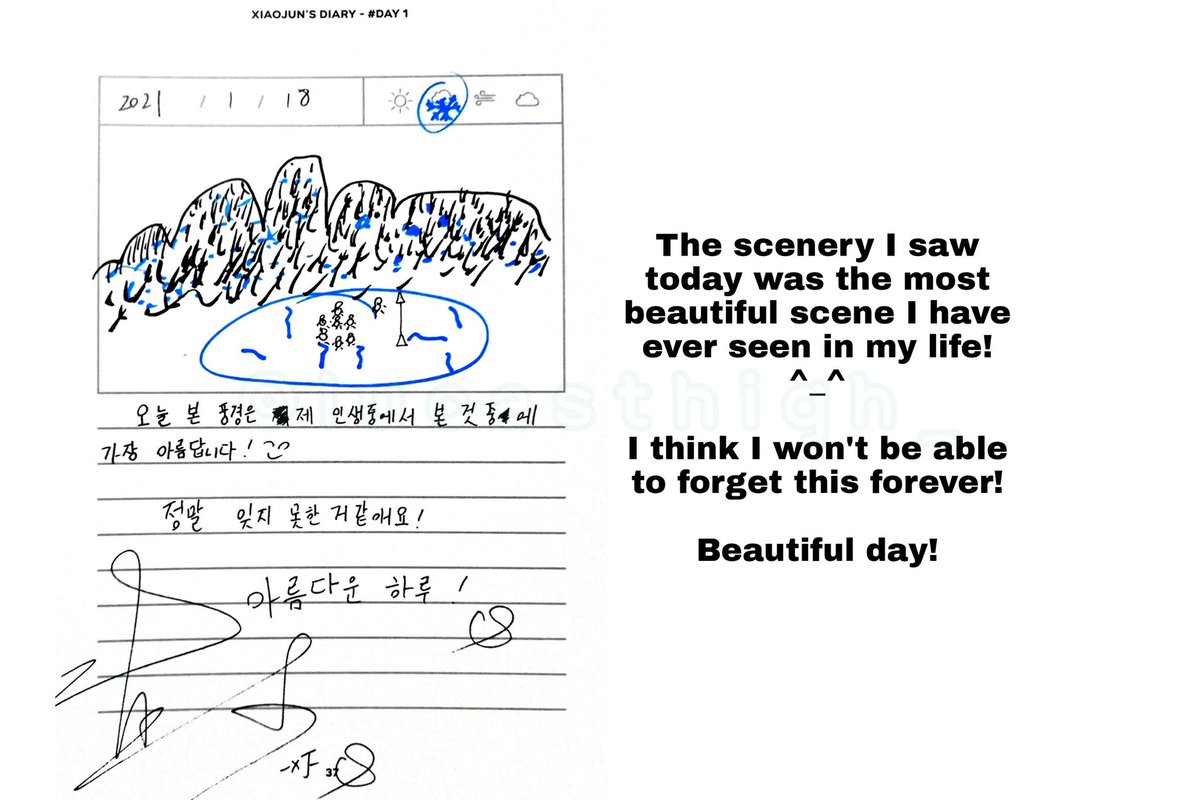 XIAOJUN'S DIARY - #DAY 1
2021 / 1 / 18
오늘 본 풍경은 제 인생중에서 본 것 중에
가장 아름답니다!
정말 잊지 못한 거같애요!
아름다운 하루!
37
The scenery I saw
today was the most
beautiful scene I have
ever seen in my life!
^_^
I think I won't be able
to forget this forever!
Beautiful day!